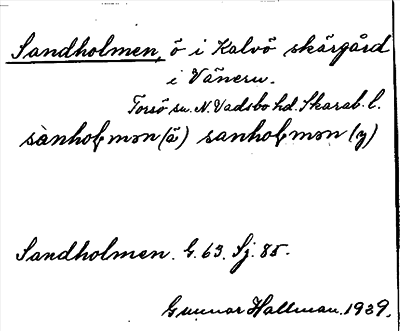 Sandholmen, ö i Kalvö skärgård
i Vänern.
Torsö sn. N. Vadsbo hd. Skarab. l.
sànhoɫmən (ä) sanhoɫmən (y)
Sandholmen. G. 63. Sj. 85.
Gunnar Hallman. 1939.